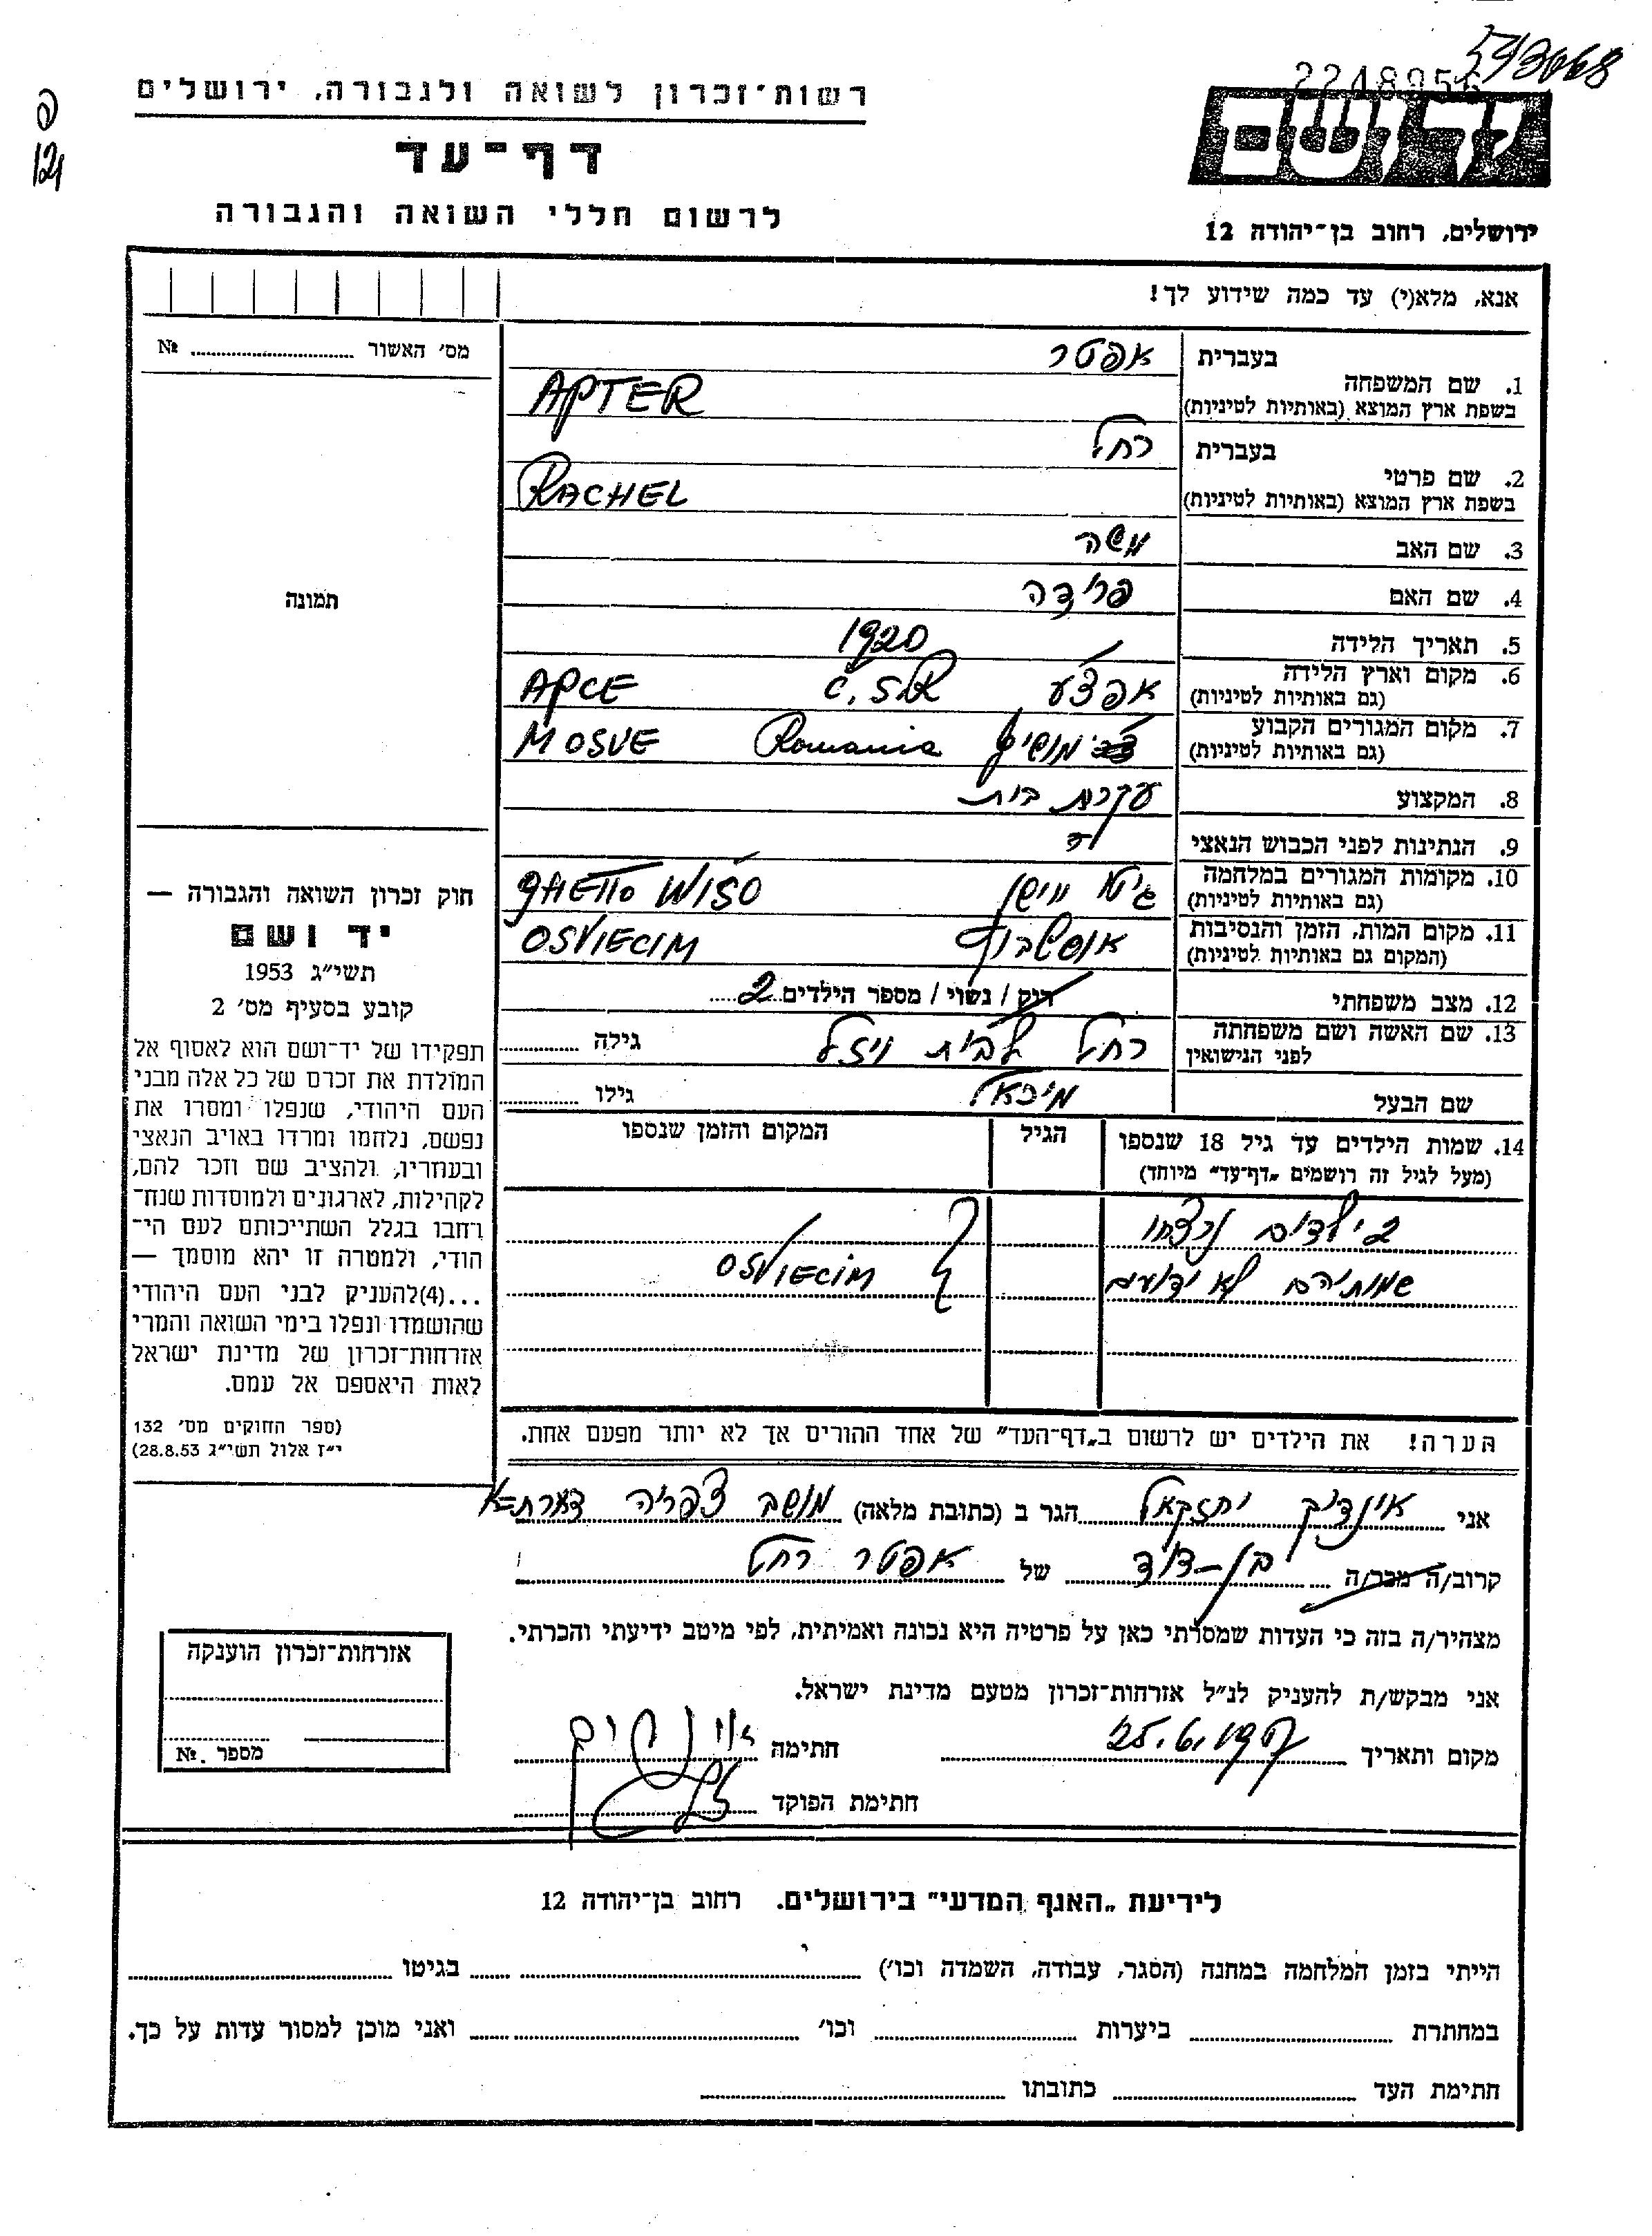 593068
2248956
רשות־זכרון לשואה ולגבורה, ירושלים
דף־עד
לרשום חללי השואה והגבורה
ידושם
ירושלים, רחוב בן־יהודה 12
אנא, מלא(י) עד כמה שידוע לך!
מס׳ האשור № 
בעברית אפטר
1. שם המשפחה
בשפת ארץ המוצא (באותיות לטיניות) APTER
בעברית רחל
2. שם פרטי
בשפת ארץ המוצא (באותיות לטיניות) RACHEL
3. שם האב משה
4. שם האם פרידה
5. תאריך הלידה 1920
6. מקום וארץ הלידה אפצע Č.S.R APCE
(גם באותיות לטיניות)
7. מקום המגורים הקבוע Romania MOSVE
(גם באותיות לטיניות)
8. המקצוע עקרת בית
9. הנתינות לפני הכבוש הנאצי
10. מקומות המגורים במלחמה גיטו GHETTO WISO
(גם באותיות לטיניות)
11. מקום המות, הזמן והנסיבות OSVIECIM
(המקום גם באותיות לטיניות)
12. מצב משפחתי רוק / נשוי / מספר הילדים 2
13. שם האשה ושם משפחתה רחל לבית ויזל גילה
לפני הנישואין
שם הבעל מיכאל גילו
14. שמות הילדים עד גיל 18 שנספו הגיל המקום והזמן שנספו
(מעל לגיל זה רושמים „דף־עד״ מיוחד)
2 ילדים נרצחו
שמותיהם לא ידועים OSVIECIM
הערה! את הילדים יש לרשום ב„דף־העד״ של אחד ההורים אך לא יותר מפעם אחת.
תמונה
חוק זכרון השואה והגבורה —
יד ושם
תשי״ג 1953
קובע בסעיף מס׳ 2
תפקידו של יד־ושם הוא לאסוף אל
המולדת את זכרם של כל אלה מבני
העם היהודי, שנפלו ומסרו את
נפשם, נלחמו ומרדו באויב הנאצי
ובעוזריו, ולהציב שם וזכר להם,
לקהילות, לארגונים ולמוסדות שנח־
רחבו בגלל השתייכותם לעם הי־
הודי, ולמטרה זו יהא מוסמך —
...(4)להעניק לבני העם היהודי
שהושמדו ונפלו בימי השואה והמרי
אזרחות־זכרון של מדינת ישראל
לאות היאספם אל עמם.
(ספר החוקים מס׳ 132
י״ז אלול תשי״ג 28.8.53)
אני אינדיק יחזקאל הגר ב (כתובת מלאה) מושב צפריה
קרוב/ה מכר/ה בן-דוד של אפטר רחל
מצהיר/ה בזה כי העדות שמסרתי כאן על פרטיה היא נכונה ואמיתית, לפי מיטב ידיעתי והכרתי.
אני מבקש/ת להעניק לנ״ל אזרחות־זכרון מטעם מדינת ישראל.
מקום ותאריך חתימה
חתימת הפוקד
אזרחות־זכרון הוענקה
מספר. №
לידיעת „האגף המדעי״ בירושלים. רחוב בן־יהודה 12
הייתי בזמן המלחמה במחנה (הסגר, עבודה, השמדה וכו׳) בגיטו
במחתרת ביערות וכו׳ ואני מוכן למסור עדות על כך.
חתימת העד כתובתו